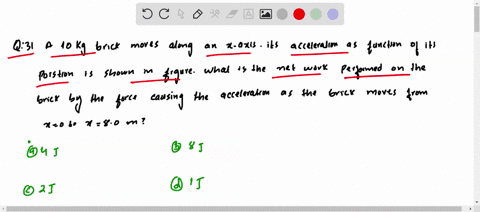 Q:31 A 10 kg brick moves along an x-axis. its acceleration as function of its
Postion is shown in figure. what is the net work performed on the
brick by the force causing the acceleration as the brick moves from
x=0 to x=8.0 m?
(a) 4 J (b) 8 J
(c) 2 J (d) 1 J